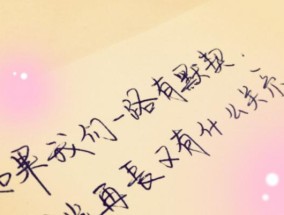 如果我们一路有默契.
再长又有什么关系